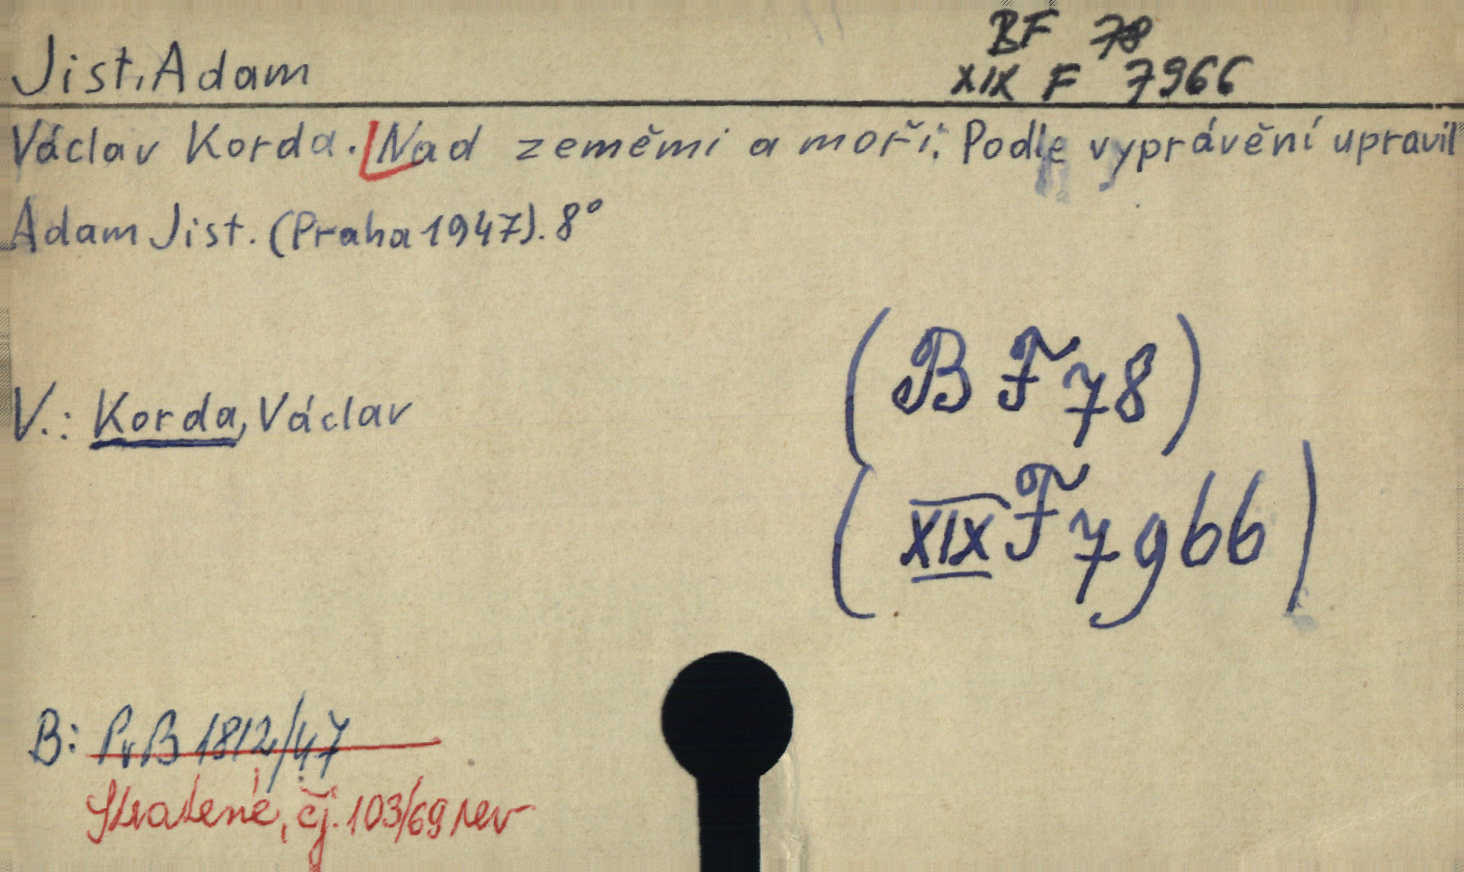 BF 78
Jist, Adam XIX F 7966
Václav Korda. Nad zeměmi a moři. Podle vyprávění upravil
Adam Jist. (Praha 1947). 8°
(B F 78)
V.: Korda, Václav
(XIX F 7966)
B: PrB 1812/47
Ztracené, čj. 103/69 rev